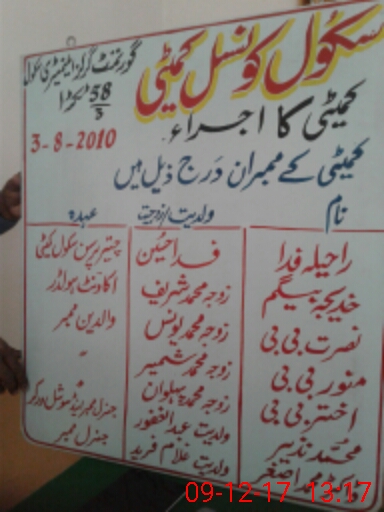 سکول کونسل کمیٹی
گورنمنٹ گرلز ایلیمنٹری سکول
58/3 ٹکڑا
کمیٹی کا اجراء
3-8-2010
کمیٹی کے ممبران درج ذیل ہیں
نام ولدیت/زوجیت عہدہ
راحیلہ فدا فدا حسین چیئرپرسن سکول کمیٹی
خدیجہ بیگم زوجہ محمد شریف اکاونٹ ہولڈر
نصرت بی بی زوجہ محمد یونس والدین ممبر
منور بی بی زوجہ محمد شمیر "
اختر بی بی زوجہ محمد پہلوان
محمد نذیر ولدیت عبدالغفور جنرل ممبر سوشل ورکر
محمد اصغر ولدیت غلام فرید جنرل ممبر
09-12-17 13:17